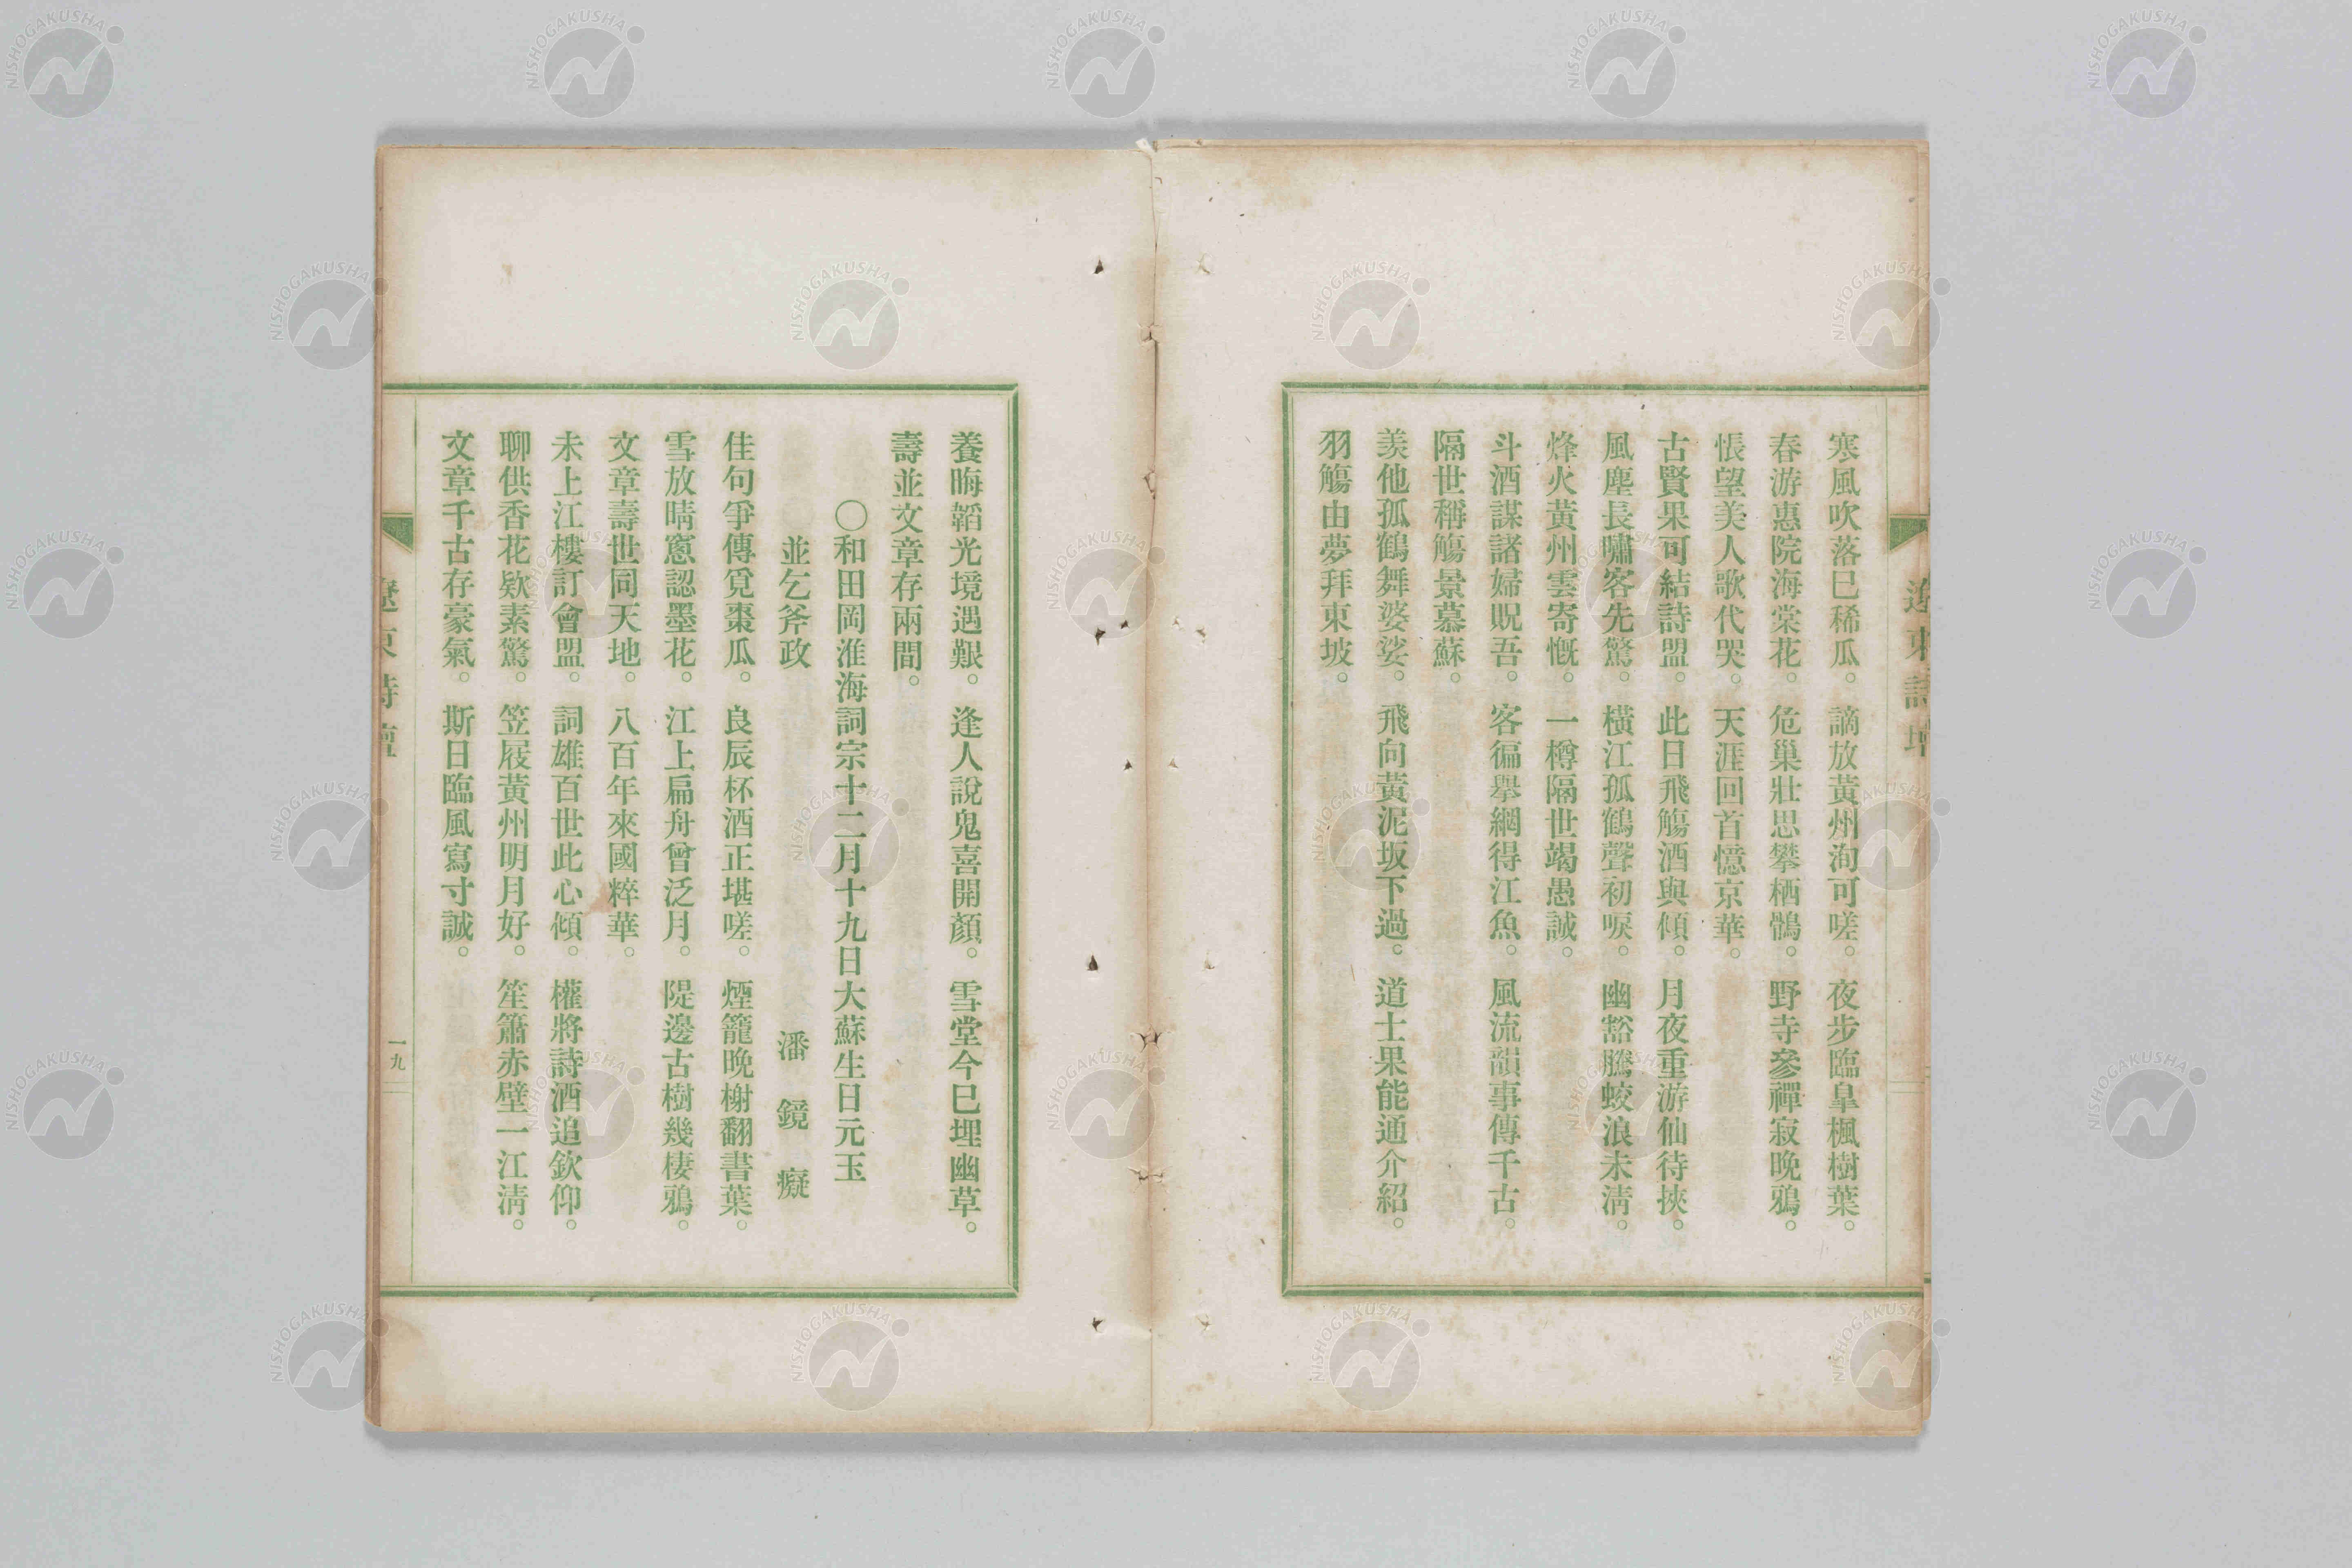 遼東詩壇
寒風吹落巳稀瓜。謫放黃州洵可嗟。夜步臨皐楓樹葉。
春游惠院海棠花。危巢壯思攀栖鶻。野寺參禪寂晚鴉。
悵望美人歌代哭。天涯回首憶京華。
古賢果可結詩盟。此日飛觴酒與傾。月夜重游仙待挾。
風塵長嘯客先驚。橫江孤鶴聲初唳。幽豁騰蛟浪未淸。
烽火黃州雲寄慨。一樽隔世竭愚誠。
斗酒謀諸婦貺吾。客徧舉網得江魚。風流韻事傳千古。
隔世稱觴景慕蘇。
羨他孤鶴舞婆娑。飛向黃泥坂下過。道士果能通介紹。
羽觴由夢拜東坡。
養晦韜光境遇艱。逢人說鬼喜開顏。雪堂今巳埋幽草。
壽並文章存兩間。
〇和田岡淮海詞宗十二月十九日大蘇生日元玉
並乞斧政 潘鏡癡
佳句爭傳覓棗瓜。良辰杯酒正堪嗟。煙籠晚榭翻書葉。
雪放晴窻認墨花。江上扁舟曾泛月。隄邊古樹幾棲鴉。
文章壽世同天地。八百年來國粹華。
未上江樓訂會盟。詞雄百世此心傾。權將詩酒追欽仰。
聊供香花欵素驚。笠屐黃州明月好。笙簫赤壁一江淸。
文章千古存豪氣。斯日臨風寫寸誠。
遼東詩壇
一九
NISHOGAKUSHA